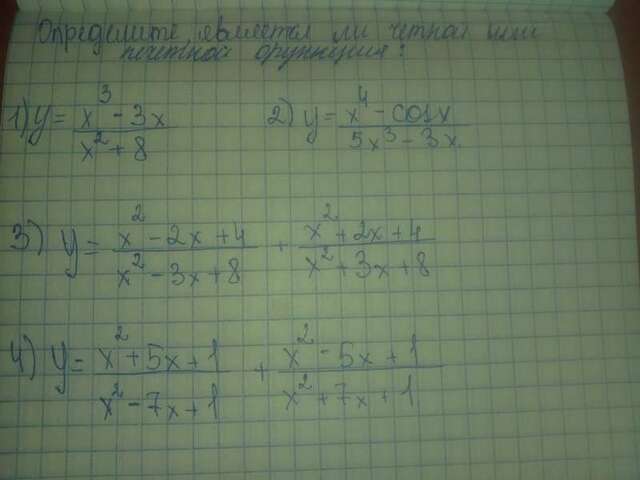 Определите, является ли четной или
нечетной функция:
1) y = (x³ - 3x)/(x² + 8) 2) y = (x⁴ - cosx)/(5x³ - 3x)
3) y = (x² - 2x + 4)/(x² - 3x + 8) + (x² + 2x + 4)/(x² + 3x + 8)
4) y = (x² + 5x + 1)/(x² - 7x + 1) + (x² - 5x + 1)/(x² + 7x + 1)